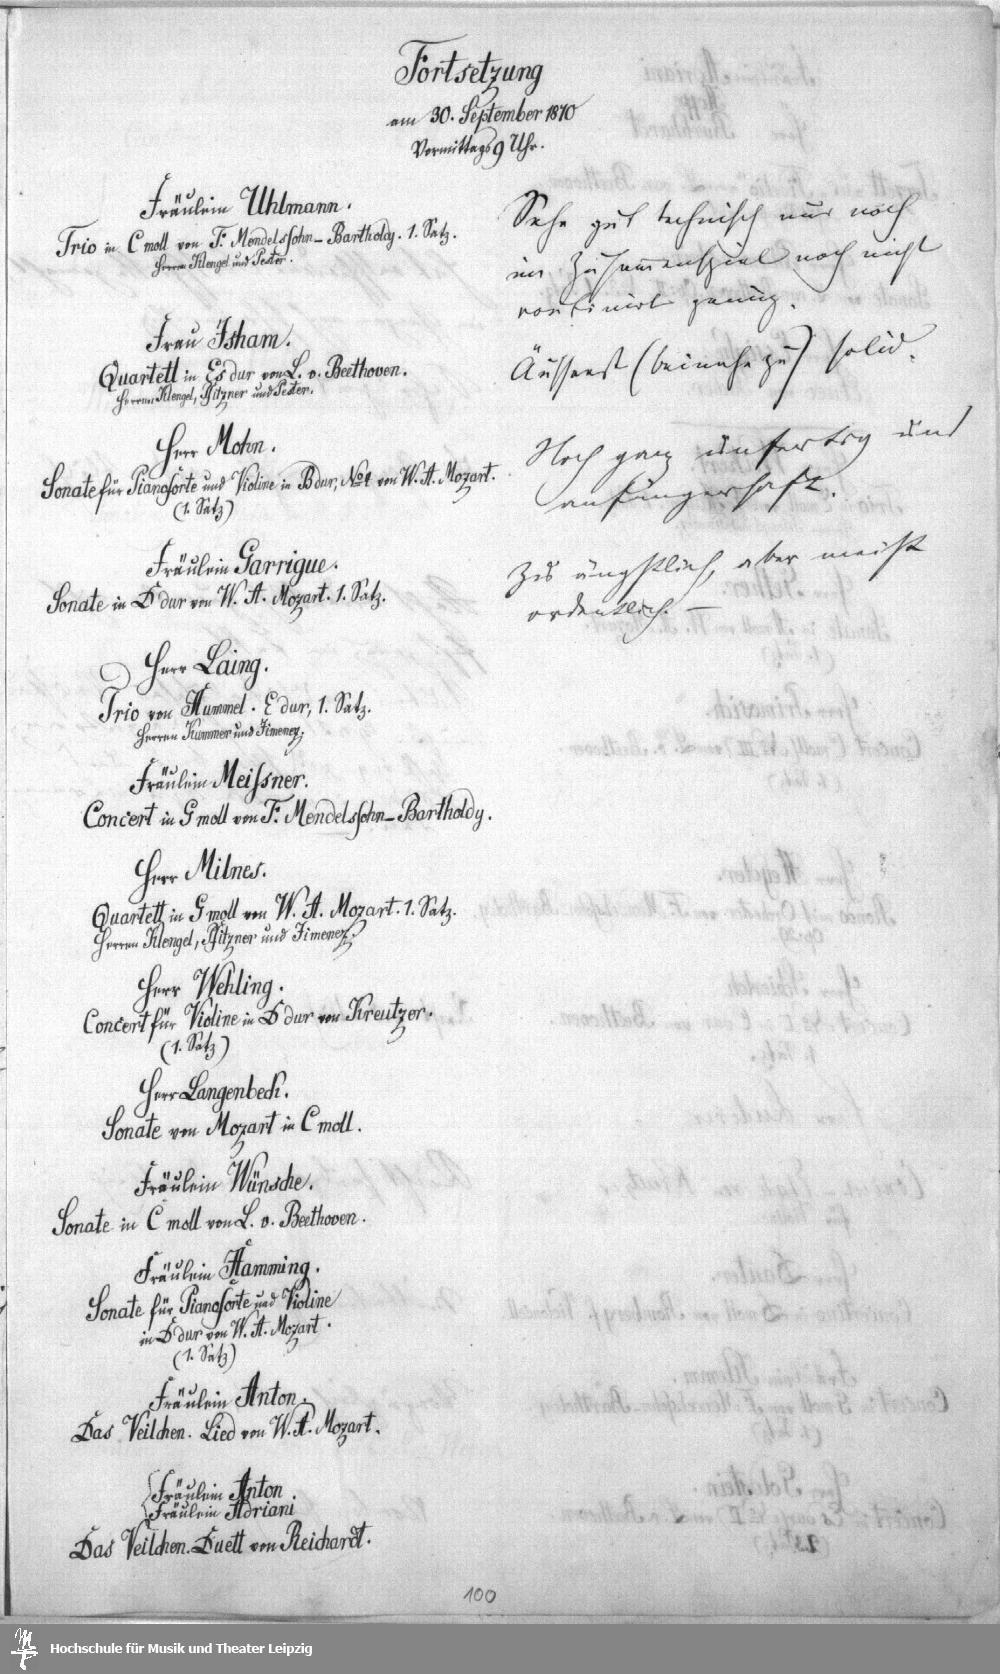 Fortsetzung
am 30. September 1870
Vormittags 9 Uhr.
Fräulein Uhlmann.
Trio in C moll von F. Mendelssohn-Bartholdy. 1. Satz.
Herren Klengel und Pester.
Sehr gut technisch nur noch
im Zusammenspiel noch nicht
routinirt genug.
Frau Isham.
Quartett in Es dur von L. v. Beethoven.
Herren Klengel, Pfitzner und Pester.
Äusserst (beinahe zu) solid.
Herr Mohn.
Sonate für Pianoforte und Violine in B dur, No 4 von W. A. Mozart.
(1. Satz)
Noch ganz unfertig und
anfängerhaft.
Fräulein Garrigue.
Sonate in D dur von W. A. Mozart. 1. Satz.
Zu ängstlich, aber meist
ordentlich. —
Herr Laing.
Trio von Hummel. E dur, 1. Satz.
Herren Kummer und Jimenez.
Fräulein Meissner.
Concert in G moll von F. Mendelssohn-Bartholdy.
Herr Milnes.
Quartett in G moll von W. A. Mozart. 1. Satz.
Herren Klengel, Pfitzner und Jimenez.
Herr Wehling.
Concert für Violine in D dur von Kreutzer.
(1. Satz)
Herr Langenbeck.
Sonate von Mozart in C moll.
Fräulein Wünsche.
Sonate in C moll von L. v. Beethoven.
Fräulein Hamming.
Sonate für Pianoforte und Violine
in D dur von W. A. Mozart.
(1. Satz)
Fräulein Anton.
Das Veilchen. Lied von W. A. Mozart.
Fräulein Anton
Fräulein Adriani
Das Veilchen. Duett von Reichardt.
100
Hochschule für Musik und Theater Leipzig